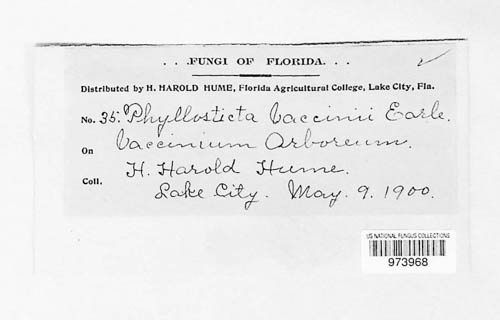 . . .FUNGI OF FLORIDA. . .
Distributed by H. HAROLD HUME, Florida Agricultural College, Lake City, Fla.
No. 35. Phyllosticta Vaccinii Earle.
On Vaccinium Arboreum.
Coll. H. Harold Hume.
Lake City. May. 9. 1900.
US NATIONAL FUNGUS COLLECTIONS
973968